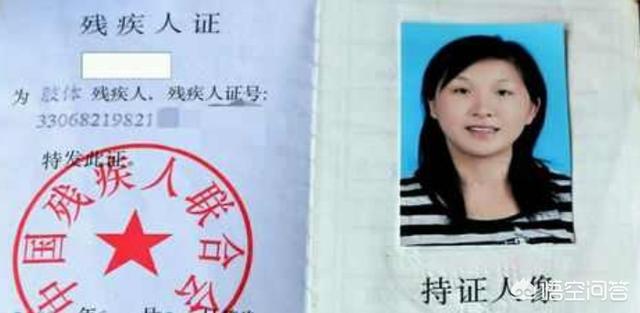 残疾人证
为 肢体 残疾人，残疾人证号：
33068219821
特发此证。
中国残疾人联合会
年
持证人像
悟空问答